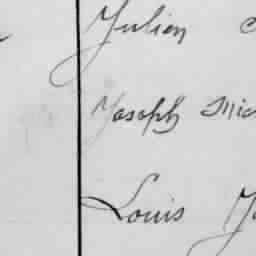 Julien
Joseph Mic
Louis